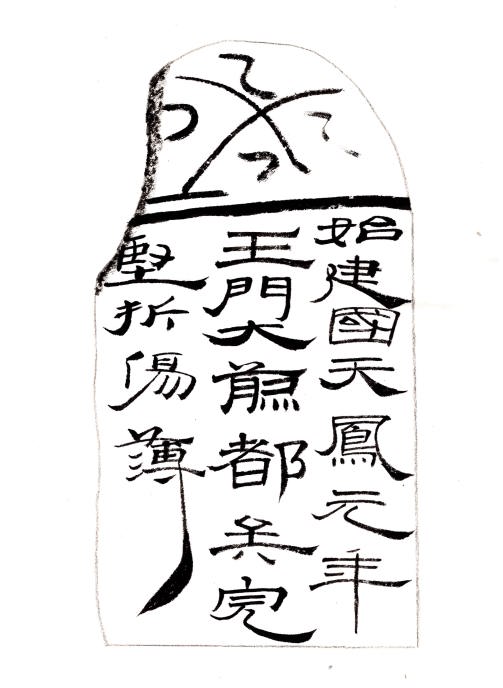 始建國天鳳元年
王門大煎都兵完
堅折傷薄